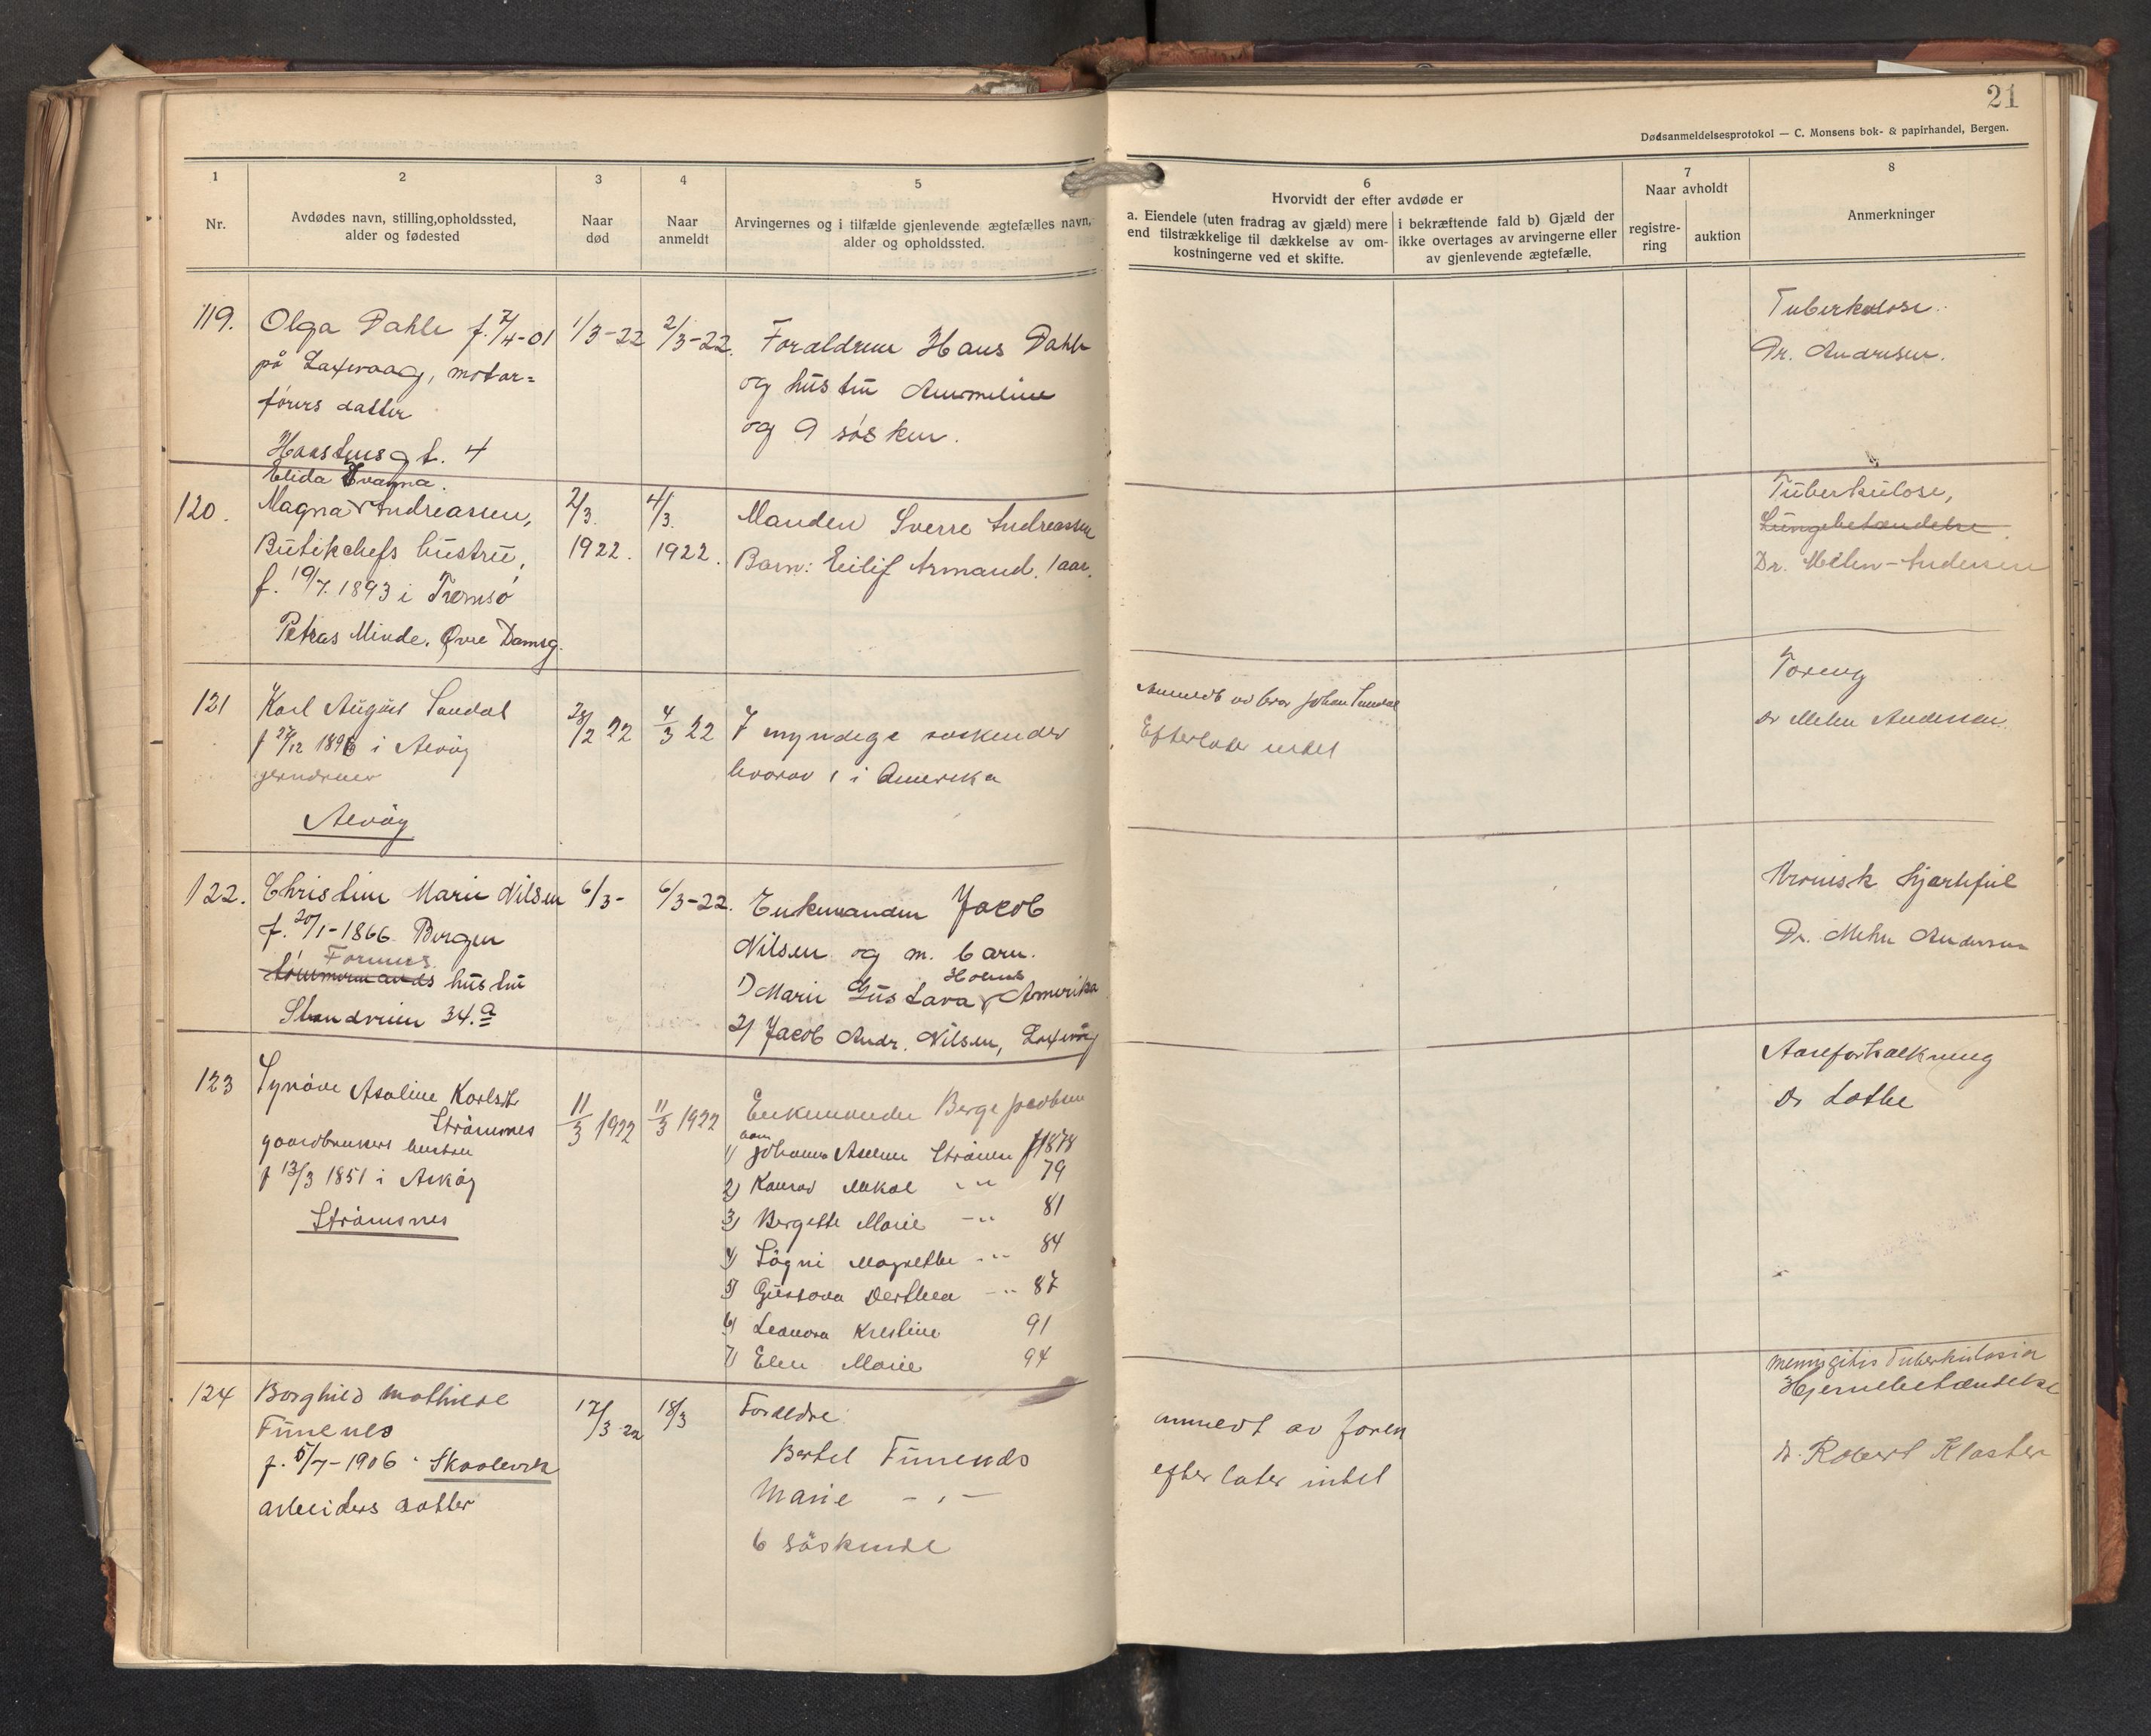 21
Dødsanmeldelsesprotokol — C. Monsens bok- & papirhandel, Bergen.
1
Nr.
2
Avdødes navn, stilling,opholdssted,
alder og fødested
3
Naar
død
4
Naar
anmeldt
5
Arvingernes og i tilfælde gjenlevende ægtefælles navn,
alder og opholdssted.
6
Hvorvidt der efter avdøde er
a. Eiendele (uten fradrag av gjæld) mere
end tilstrækkelige til dækkelse av om-
kostningerne ved et skifte.
i bekræftende fald b) Gjæld der
ikke overtages av arvingerne eller
av gjenlevende ægtefælle.
7
Naar avholdt
registre-
ring
auktion
8
Anmerkninger
119.
Olga Dahle f. 7/4-01
på Laxevaag, motor=
førers datter
Haastensgt. 4
1/3-22
2/3-22.
Forældrene Hans Dahle
og hustru
og 9 søsken.
Tuberkulose.
Dr. Andresen.
120.
Elida Evanna.
Magna Andreassen,
Butikchefs hustru,
f. 19/7. 1893 i Tromsø
Petras Minde. Øvre Damsg.
2/3.
1922.
4/3.
1922.
Manden Sverre Andreassen
Barn: Eilif Armand. 1 aar.
Tuberkulose,
Lungebetændelse.
Dr. Mehn-Andersen
121
Karl August Sandal
f 27/12 1896 i Alvøy
Alvøy
28/2 22
4/3 22
7 myndige søskender
hvorav 1 i Amerika
Anmeldt av bror Johan Sandal
Efterlater intet
Tæring
Dr Mehn Andersen
122.
Christine Marie Nilsen
f. 20/1-1866 Bergen
Formers
tømmermands hustru
Strandveien 34.a
6/3-
6/3-22.
Enkemanden Jacob
Nilsen og m. barn.
1) Marie Gustava Amerika
2) Jacob Andr. Nilsen, Laxevåg
Kronisk hjertefeil
Dr. Mehn Andersen
123
Synøve Asoline Karlsdtr
Strømsnes
gaardbrukers hustru
f 13/3 1851 i Askøy
Strømsnes
11/3 1922
11/3 1922
Enkemanden Berge Jacobsen
barn
1) Johannes Strømsnes f 1878
2) Konrad Mikal -"- 79
3) Bergette Marie -"- 81
4) Søgni Magrethe -"- 84
5) Gustava Dorthea -"- 87
6) Leonora Kristine 91
7) Elen Marie 94
Aareforkalkning
Dr Lothe
124
Borghild Mathilde
Fimenes
f. 5/7-1906 i Skaalevik
arbeiders datter
17/3 22
18/3
Forældre:
Bertel
Marie -"-
6 søskende
anmeldt av faren
efterlater intet
meningitis tuberkulosia
Hjernebetændelse
dr. Robert Kloster